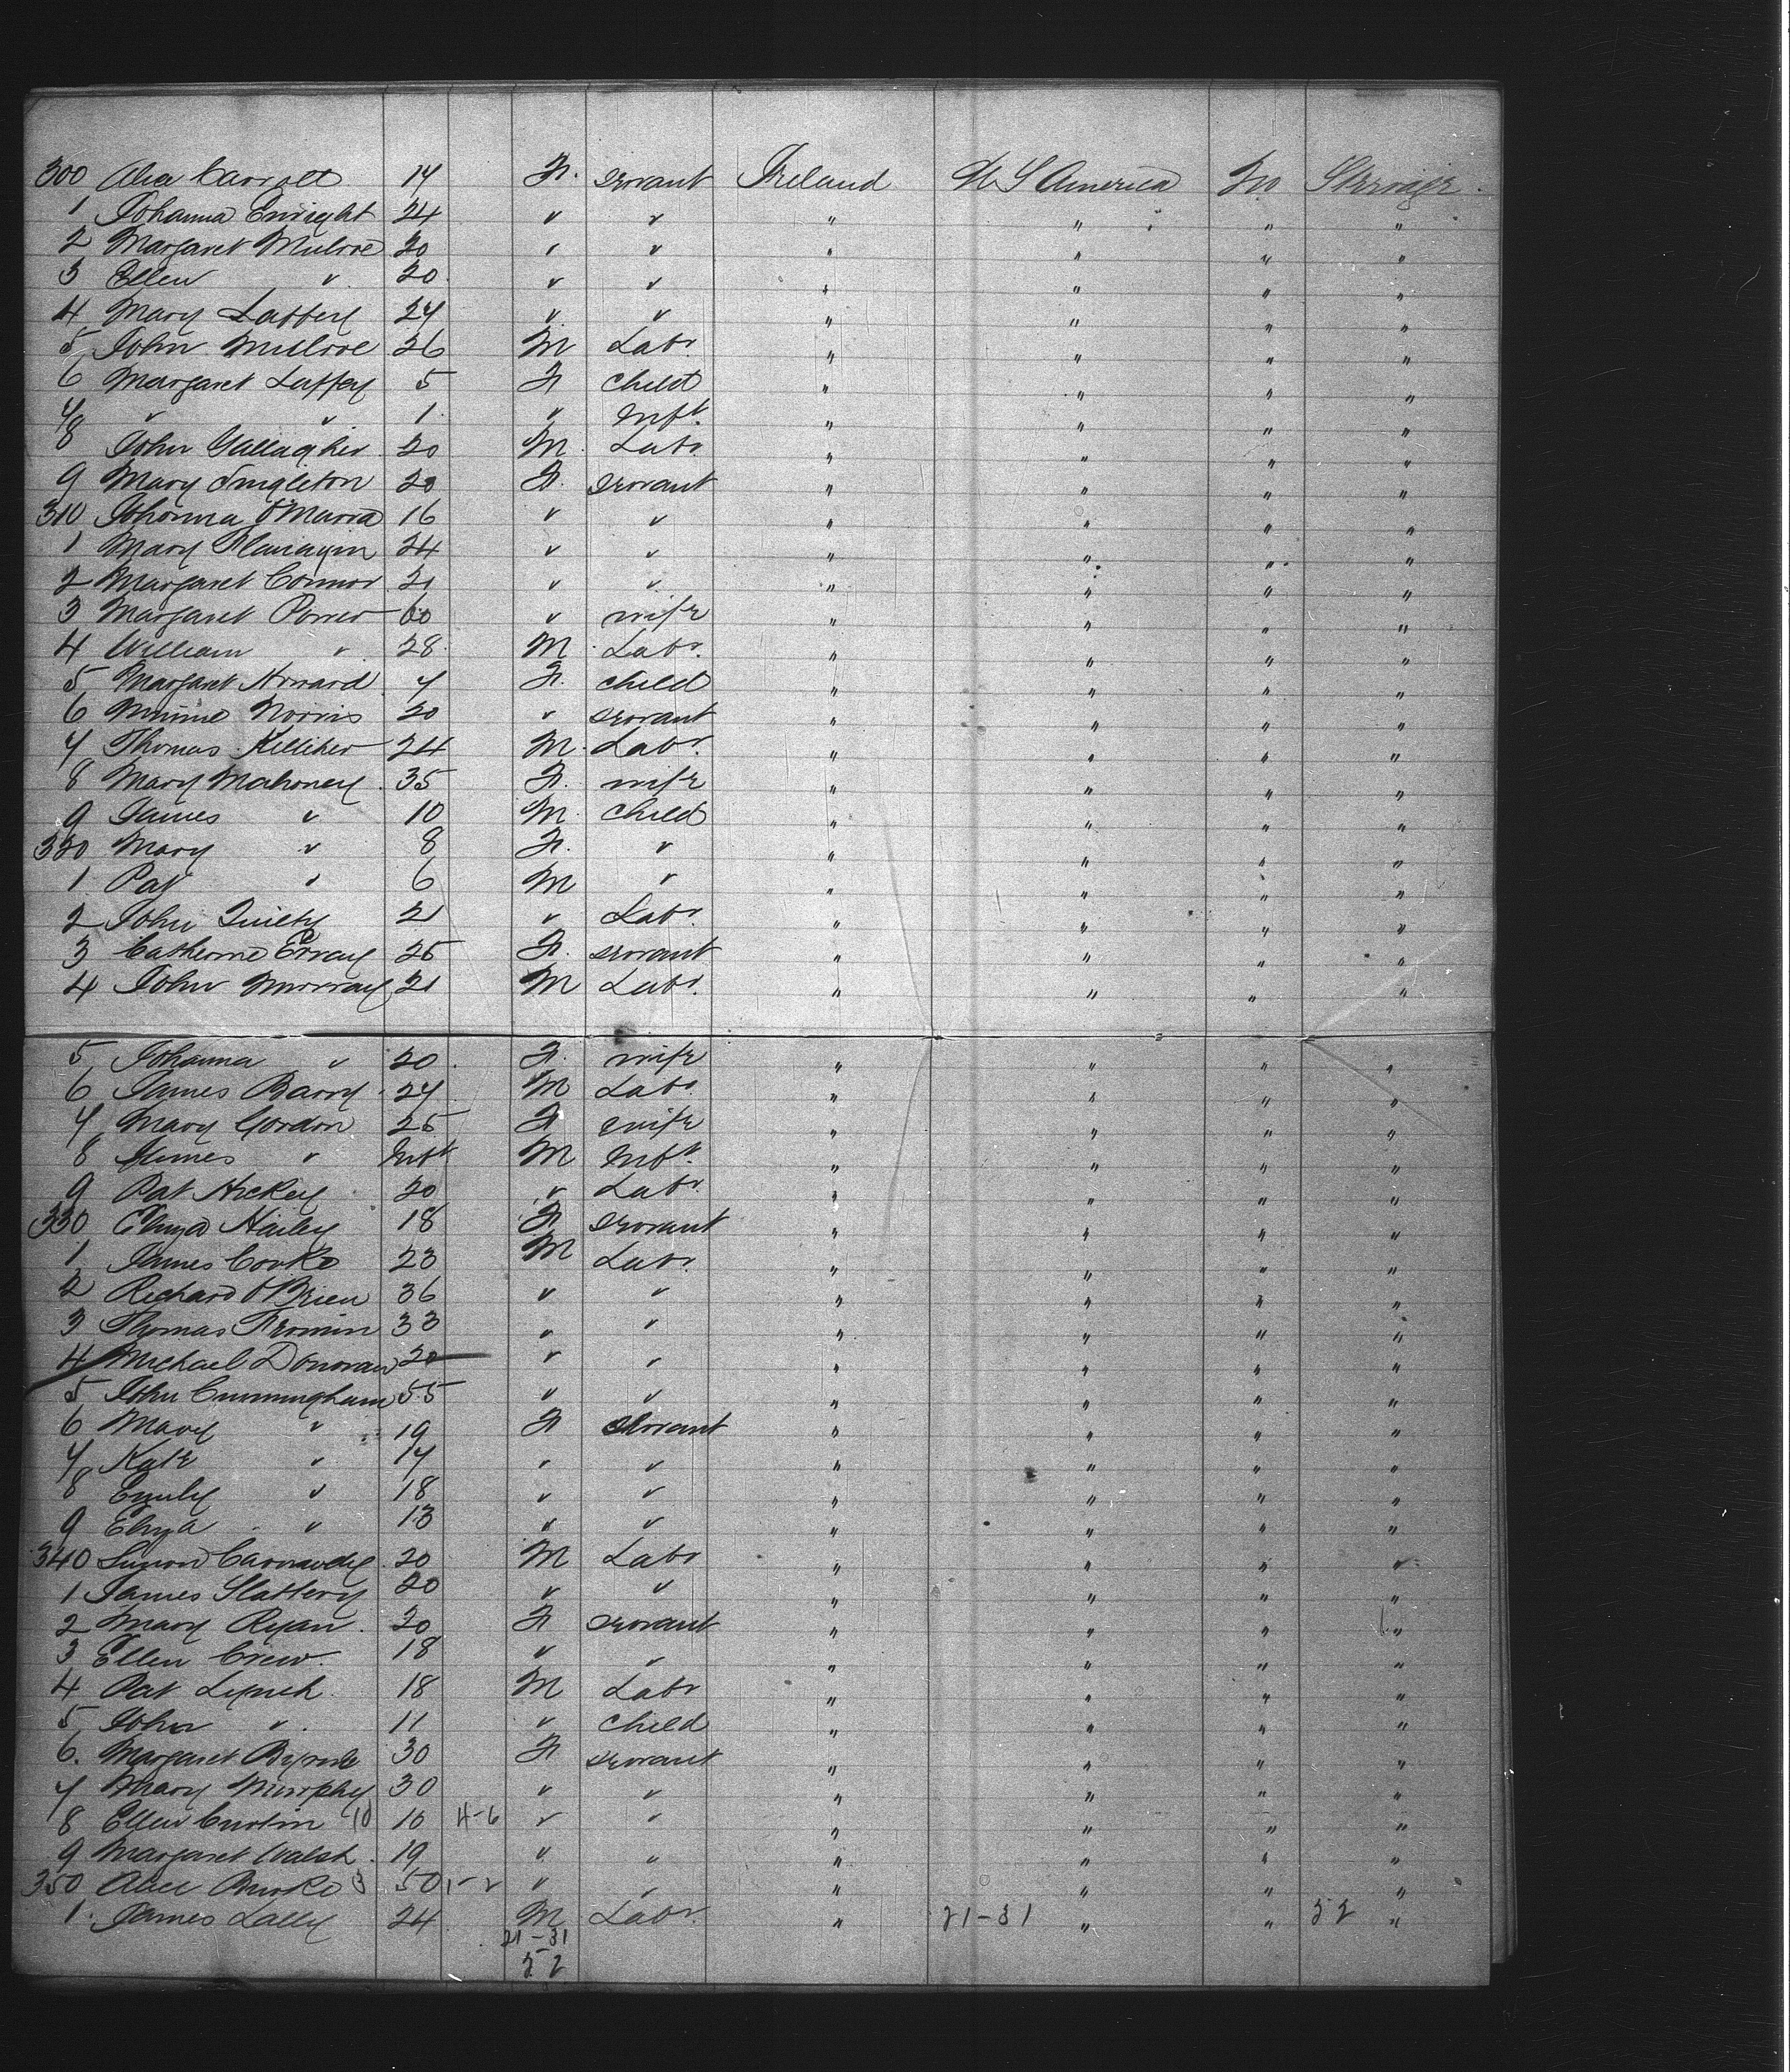 300 Alice Carroll 17 F. servant Ireland U S America No Steerage.
1 Johanna Enright 24 " " " " " "
2 Margaret Mulroe 20 " " " " " "
3 Ellen " 20 " " " " " "
4 Mary Laffey 27 " " " " " "
5 John Mulroe 26 M Labr. " " " "
6 Margaret Laffey 5 F child " " " "
7 " " 1 " Inft. " " " "
8 John Gallagher 20 M Labr " " " "
9 Mary Singleton 20 F. servant " " " "
310 Johanna O'Marra 16 " " " " " "
1 Mary Flanagan 24 " " " " " "
2 Margaret Connor 21 " " " " " "
3 Margaret Power 60 " wife " " " "
4 William " 28 M Labr. " " " "
5 Margaret Howard 7 F. child " " " "
6 Minnie Norris 20 " servant " " " "
7 Thomas Kelliher 24 M. Labr. " " " "
8 Mary Mahoney 35 F. wife " " " "
9 James " 10 M. child " " " "
320 Mary " 8 F. " " " " "
1 Pat " 6 M " " " " "
2 John Quilty 21 " Labr. " " " "
3 Catherine 25 F. servant " " " "
4 John Murray 21 M Labr. " " " "
5 Johanna " 20 F. wife " " " "
6 James Barry 27 M Labr. " " " "
7 Mary Gordon 25 F wife " " " "
8 James " Inft M Inft. " " " "
9 Pat Hickey 20 " Labr. " " " "
330 Eliza Hailey 18 F servant " " " "
1 James Cooke 23 M Labr. " " " "
2 Richard O'Brien 36 " " " " " "
3 Thomas 33 " " " " " "
4 Michael Donovan 20 " " " " " "
5 John Cunningham 55 " " " " " "
6 Mary " 19 F servant " " " "
7 Kate " 17 " " " " " "
8 Emily " 18 " " " " " "
9 Eliza " 13 " " " " " "
340 Simon 20 M Labr " " " "
1 James Slattery 20 " " " " " "
2 Mary Ryan 20 F servant " " " "
3 Ellen Crew 18 " " " " " "
4 Pat Lynch 18 M Labr " " " "
5 John " 11 " child " " " "
6. Margaret Byrne 30 F servant " " " "
7 Mary Murphy 30 " " " " " "
8 Ellen Curtin 10 10 4-6 " " " " " "
9 Margaret Walsh 19 " " " " " "
350 Alice Burke 3 50 1-2 " " " " " "
1. James Lally 24 M Labr. " 21-31 " " 52 "
21-31
52